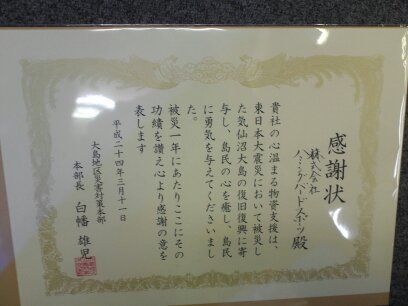 感謝状
株式会社
ハミングバードスポーツ殿
貴社の心温まる物資支援は、
東日本大震災において被災し
た気仙沼大島の復旧復興に寄
与し、島民の心を癒し、島民
に勇気を与えてくださいまし
た。
被災一年にあたりここにその
功績を讃え心より感謝の意を
表します
平成二十四年三月十一日
大島地区災害対策本部
本部長 白幡雄児